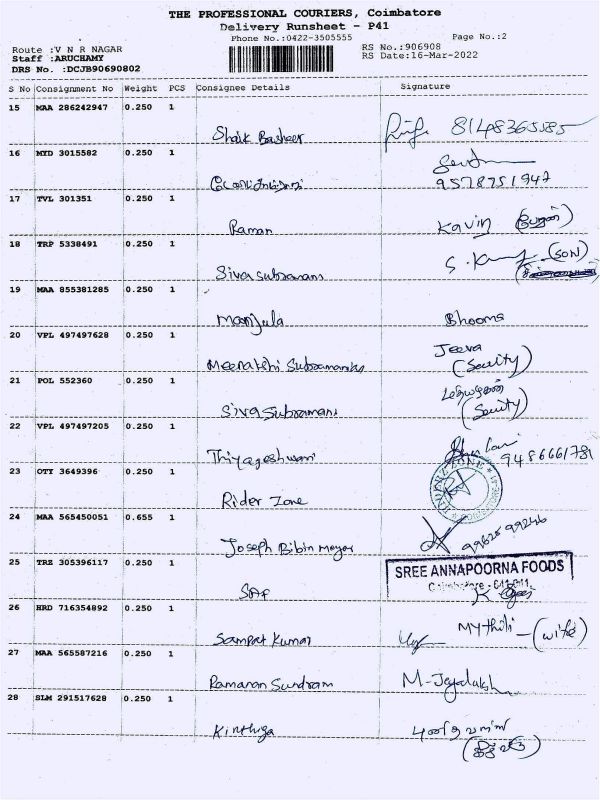 THE PROFESSIONAL COURIERS, Coimbatore
Delivery Runsheet - P41
Phone No.:0422-3505555
Page No.:2
Route :V N R NAGAR
RS No.:906908
Staff :ARUCHAMY
RS Date:16-Mar-2022
DRS No. :DCJB90690802
S No Consignment No Weight PCS Consignee Details Signature
15 MAA 286242947 0.250 1
Shaik Basheer 8148365585
16 MYD 3015582 0.250 1
9578951947
17 TVL 301351 0.250 1
Raman Kavin
18 TRP 5338491 0.250 1
Siva Subramani S. (SON)
19 MAA 855381285 0.250 1
Manjula Bhooma
20 VPL 497497628 0.250 1
Meenatchi Jeeva
(Security)
21 POL 552360 0.250 1
Siva Subramani (Security)
22 VPL 497497205 0.250 1
Thiyageshwari 9486661781
23 OTY 3649396 0.250 1
Rider Zone
24 MAA 565450051 0.655 1
Joseph Bibin
25 TRZ 305396117 0.250 1
SREE ANNAPOORNA FOODS
26 HRD 716354892 0.250 1
Sampat Kumar Mythili - (wife)
27 MAA 565587216 0.250 1
Ramanan Sundram
28 SLM 291517628 0.250 1
Kinthiga